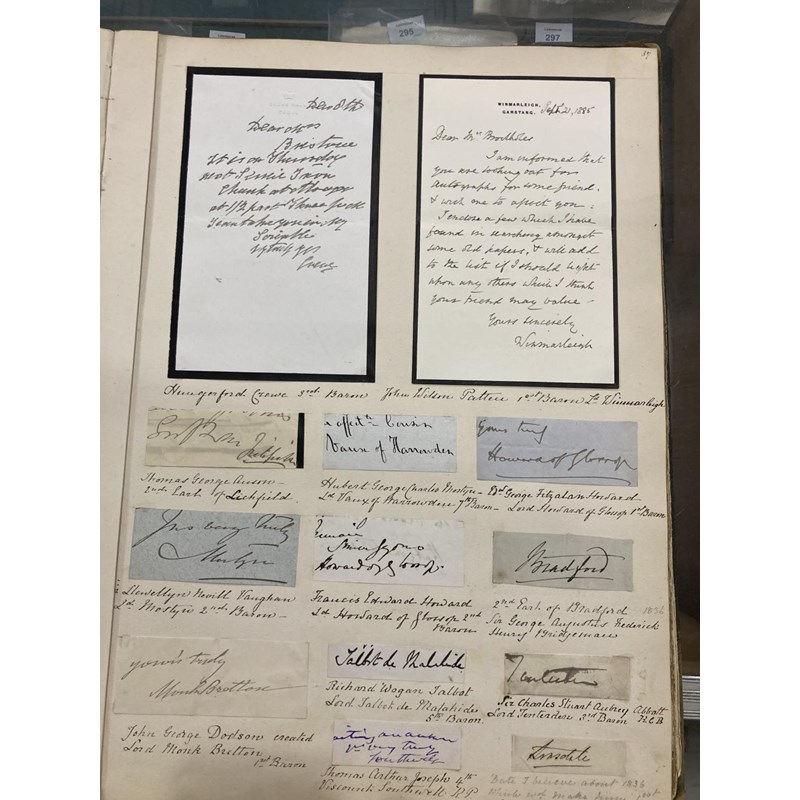 295
297
Dear Mrs
Bristowe
It is on Thursday
at 1/2 past Three
Crewe
WINMARLEIGH,
GARSTANG.
Sept 2, 1885
Dear Mrs
I am informed that
you are looking out for
autographs for some friend,
& wish me to assist you.
I enclose a few which I have
found in searching amongst
some old papers, & will add
to the list if I should light
upon any others which I think
your friend may value –
Yours sincerely
Winmarleigh
Hungerford Crewe 3rd Baron
John Wilson Patten 1st Baron Ld Winmarleigh
Lichfield
Cousin
Vaux of Harrowden
Yours truly
Howard of Glossop
Thomas George Anson –
2nd Earl of Lichfield.
Hubert George Charles Mostyn –
Ld Vaux of Harrowden – 7th Baron –
Ed. George Fitzalan Howard –
Lord Howard of Glossop 1st Baron
Yrs very truly
Mostyn
remain
Howard of Glossop.
Bradford
Llewellyn Nevill Vaughan
Ld Mostyn 2nd Baron –
Francis Edward Howard
Ld Howard of Glossop 2nd
Baron
2nd Earl of Bradford 1836
Sir George Augustus Frederick
Henry Bridgeman
yours truly
Monk Bretton
Talbot de Malahide
Tenterden
John George Dodson created
Lord Monk Bretton
1st Baron
Richard Wogan Talbot
Lord Talbot de Malahide
5th Baron
Sir Charles Stuart Aubrey Abbott
Lord Tenterden 3rd Baron KCB
very truly
Southwell
Thomas Arthur Joseph 4th
Viscount Southwell K.P.
Date I believe about 1836